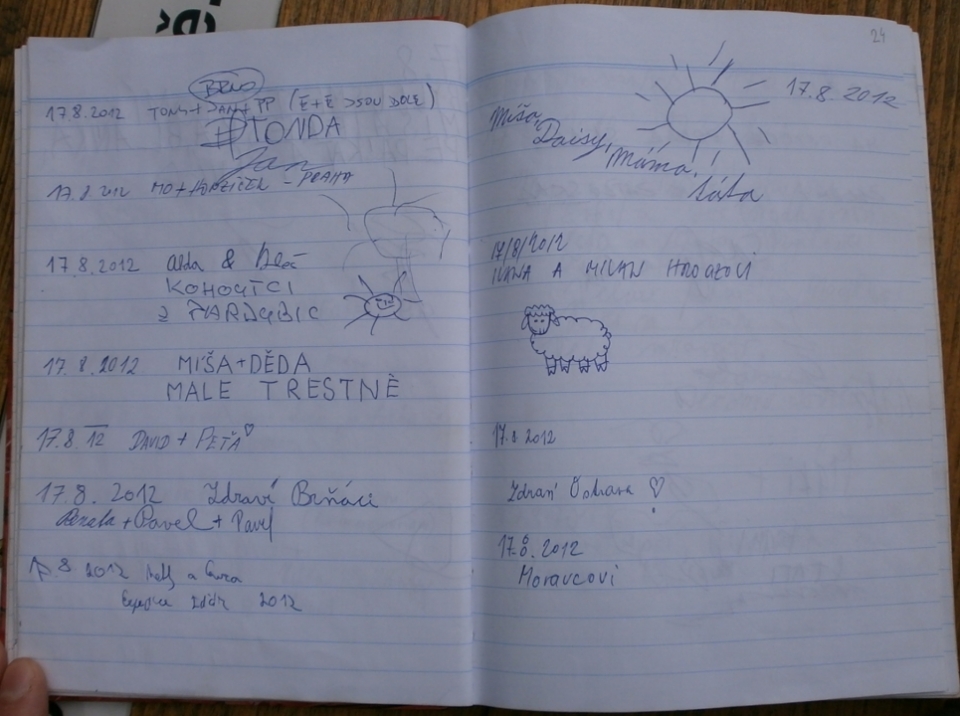 BRNO
17.8.2012 TONY+JANA+PP (E+E JSOU DOLE)
TONDA
Jan
17.8.2012 MO+HONZÍČEK - PRAHA
17.8.2012 Alda &
KOHOUTCI
Z PARDUBIC
17.8.2012 MIŠA+DĚDA
MALE TRESTNÉ
17.8.12 DAVID + PEŤA
17.8.2012 Zdraví Brňáci
Renata + Pavel + Pavel
17 8 2012 a
2012
24
17.8.2012
Míša,
Daisy,
Máma,
táta
17/8/2012
IVANA A MILAN
17.8.2012
Zdraví Ostrava
17.8.2012
Moravcovi